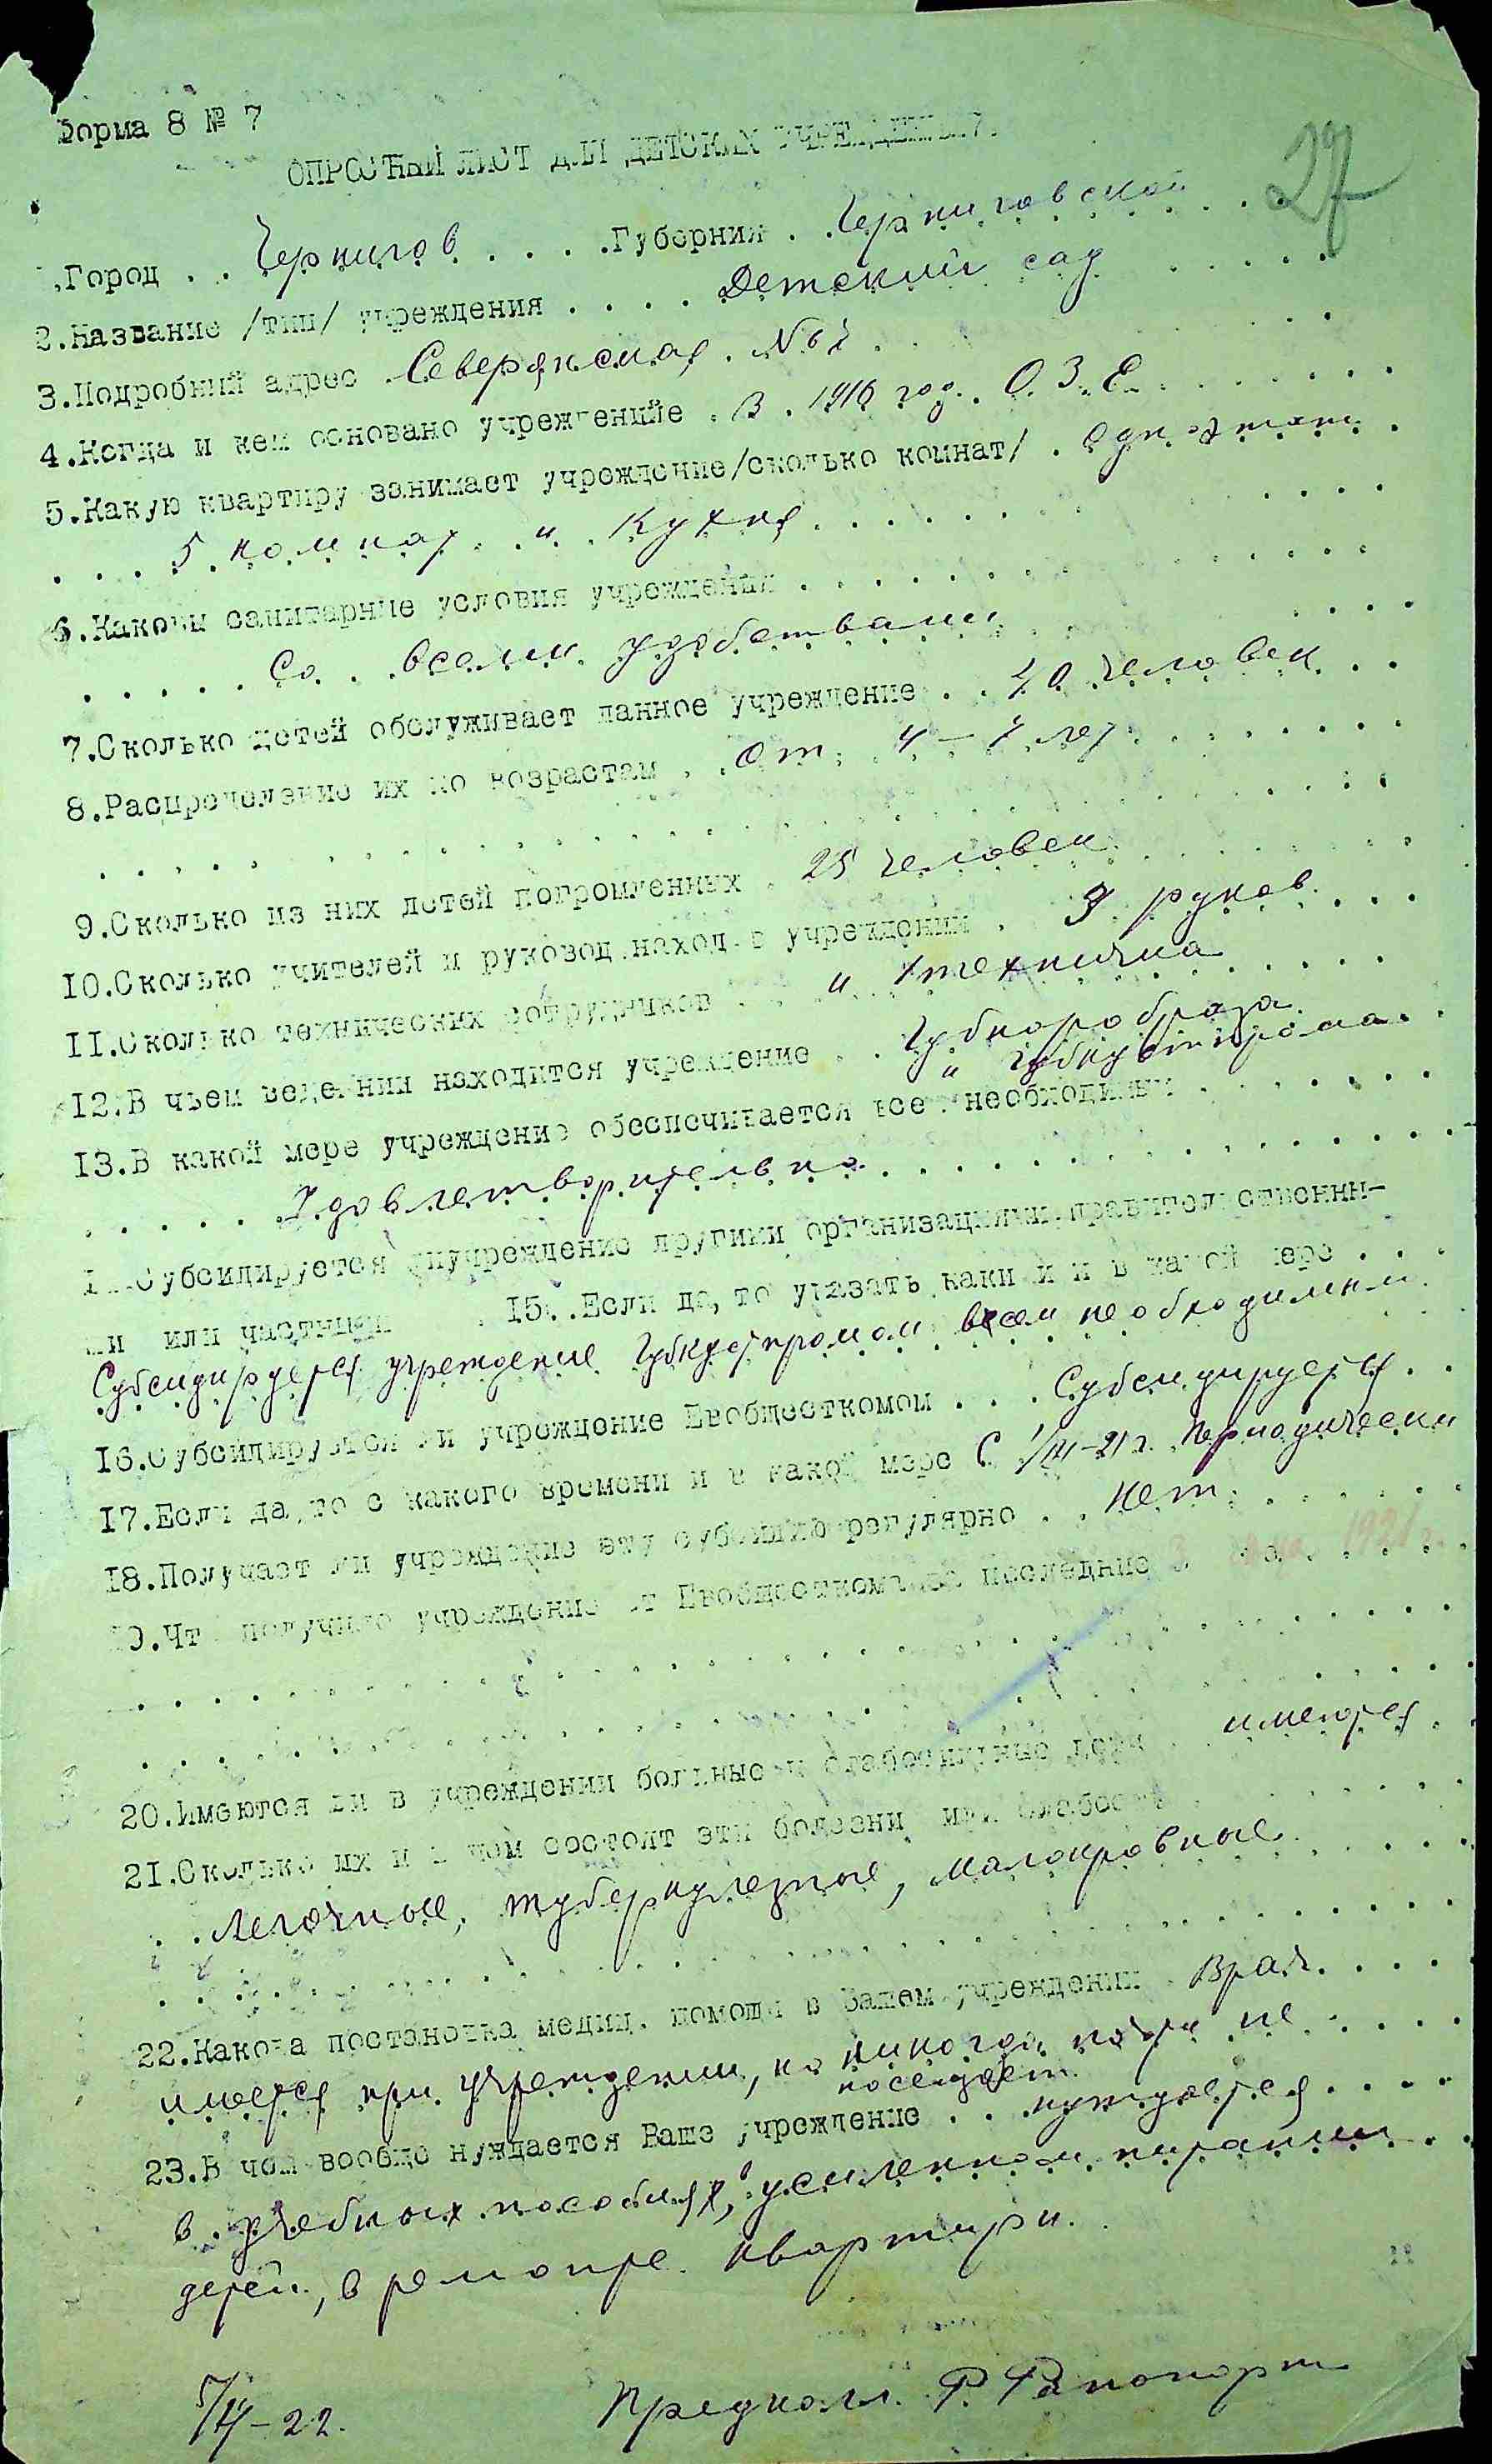 Форма 8 № 7
27
ОПРОСНЫЙ ЛИСТ ДЛЯ ДЕТСКИХ УЧРЕЖДЕНИЙ.
1.Город . . Чернигов . . . . Губерния . . Черниговской
2.Название /тип/ учреждения . . . . Детский сад
3.Подробний адрес . Северянская №
4.Когда и кем основано учреждение . В 1916 год. О.З.Е.
5.Какую квартиру занимает учреждение/сколько комнат/ .
. . . 5 комнат и Кухня
6.Каковы санитарные условия учреждения
Со всеми удобствами
7.Сколько детей обслуживает данное учреждение . . 40 человек
8.Распределение их по возрастам . . От 4 – 7 лет
9.Сколько из них детей погромленных . 25 человек
10.Сколько учителей и руковод.наход.в учреждении . 3 руков.
11.Сколько технических сотрудников . . и 1 техничка
12.В чьем ведении находится учреждение . . Губнаробраза
и Губкустпрома
13.В какой мере учреждение обеспечивается все необходимым
Удовлетворительно
Субсидируется ли учреждение другими организациями правительственны-
ми или частными . 15..Если да, то указать какими и в какой мере . . .
Субсидируется учреждение Губкустпромом всем необходимым
16.Субсидируется ли учреждение Евобщесткомом . . . Субсидируется
17.Если да,то с какого времени и в какой мере С 1/III-21г. Периодически
18.Получает ли учреждение эту субсидию регулярно . . Нет
19.Что получило учреждение от Евобщесткома за последние 3 1921г.
20.Имеются ли в учреждении больные и слабосильные дети . . имеются
21.Сколько их и в чем состоит эти болезни или слабости
Легочные, туберкулезные, малокровные
22.Какова постановка медиц. помощи в Вашем учреждении . Врач
имеется при учреждении, но никогда почти не
посещает
23.В чем вообще нуждается Ваше учреждение . . нуждается
в учебных пособиях, в усиленном питании
детей, в ремонте квартиры.
-22.
Предколл. Р. Рапопорт